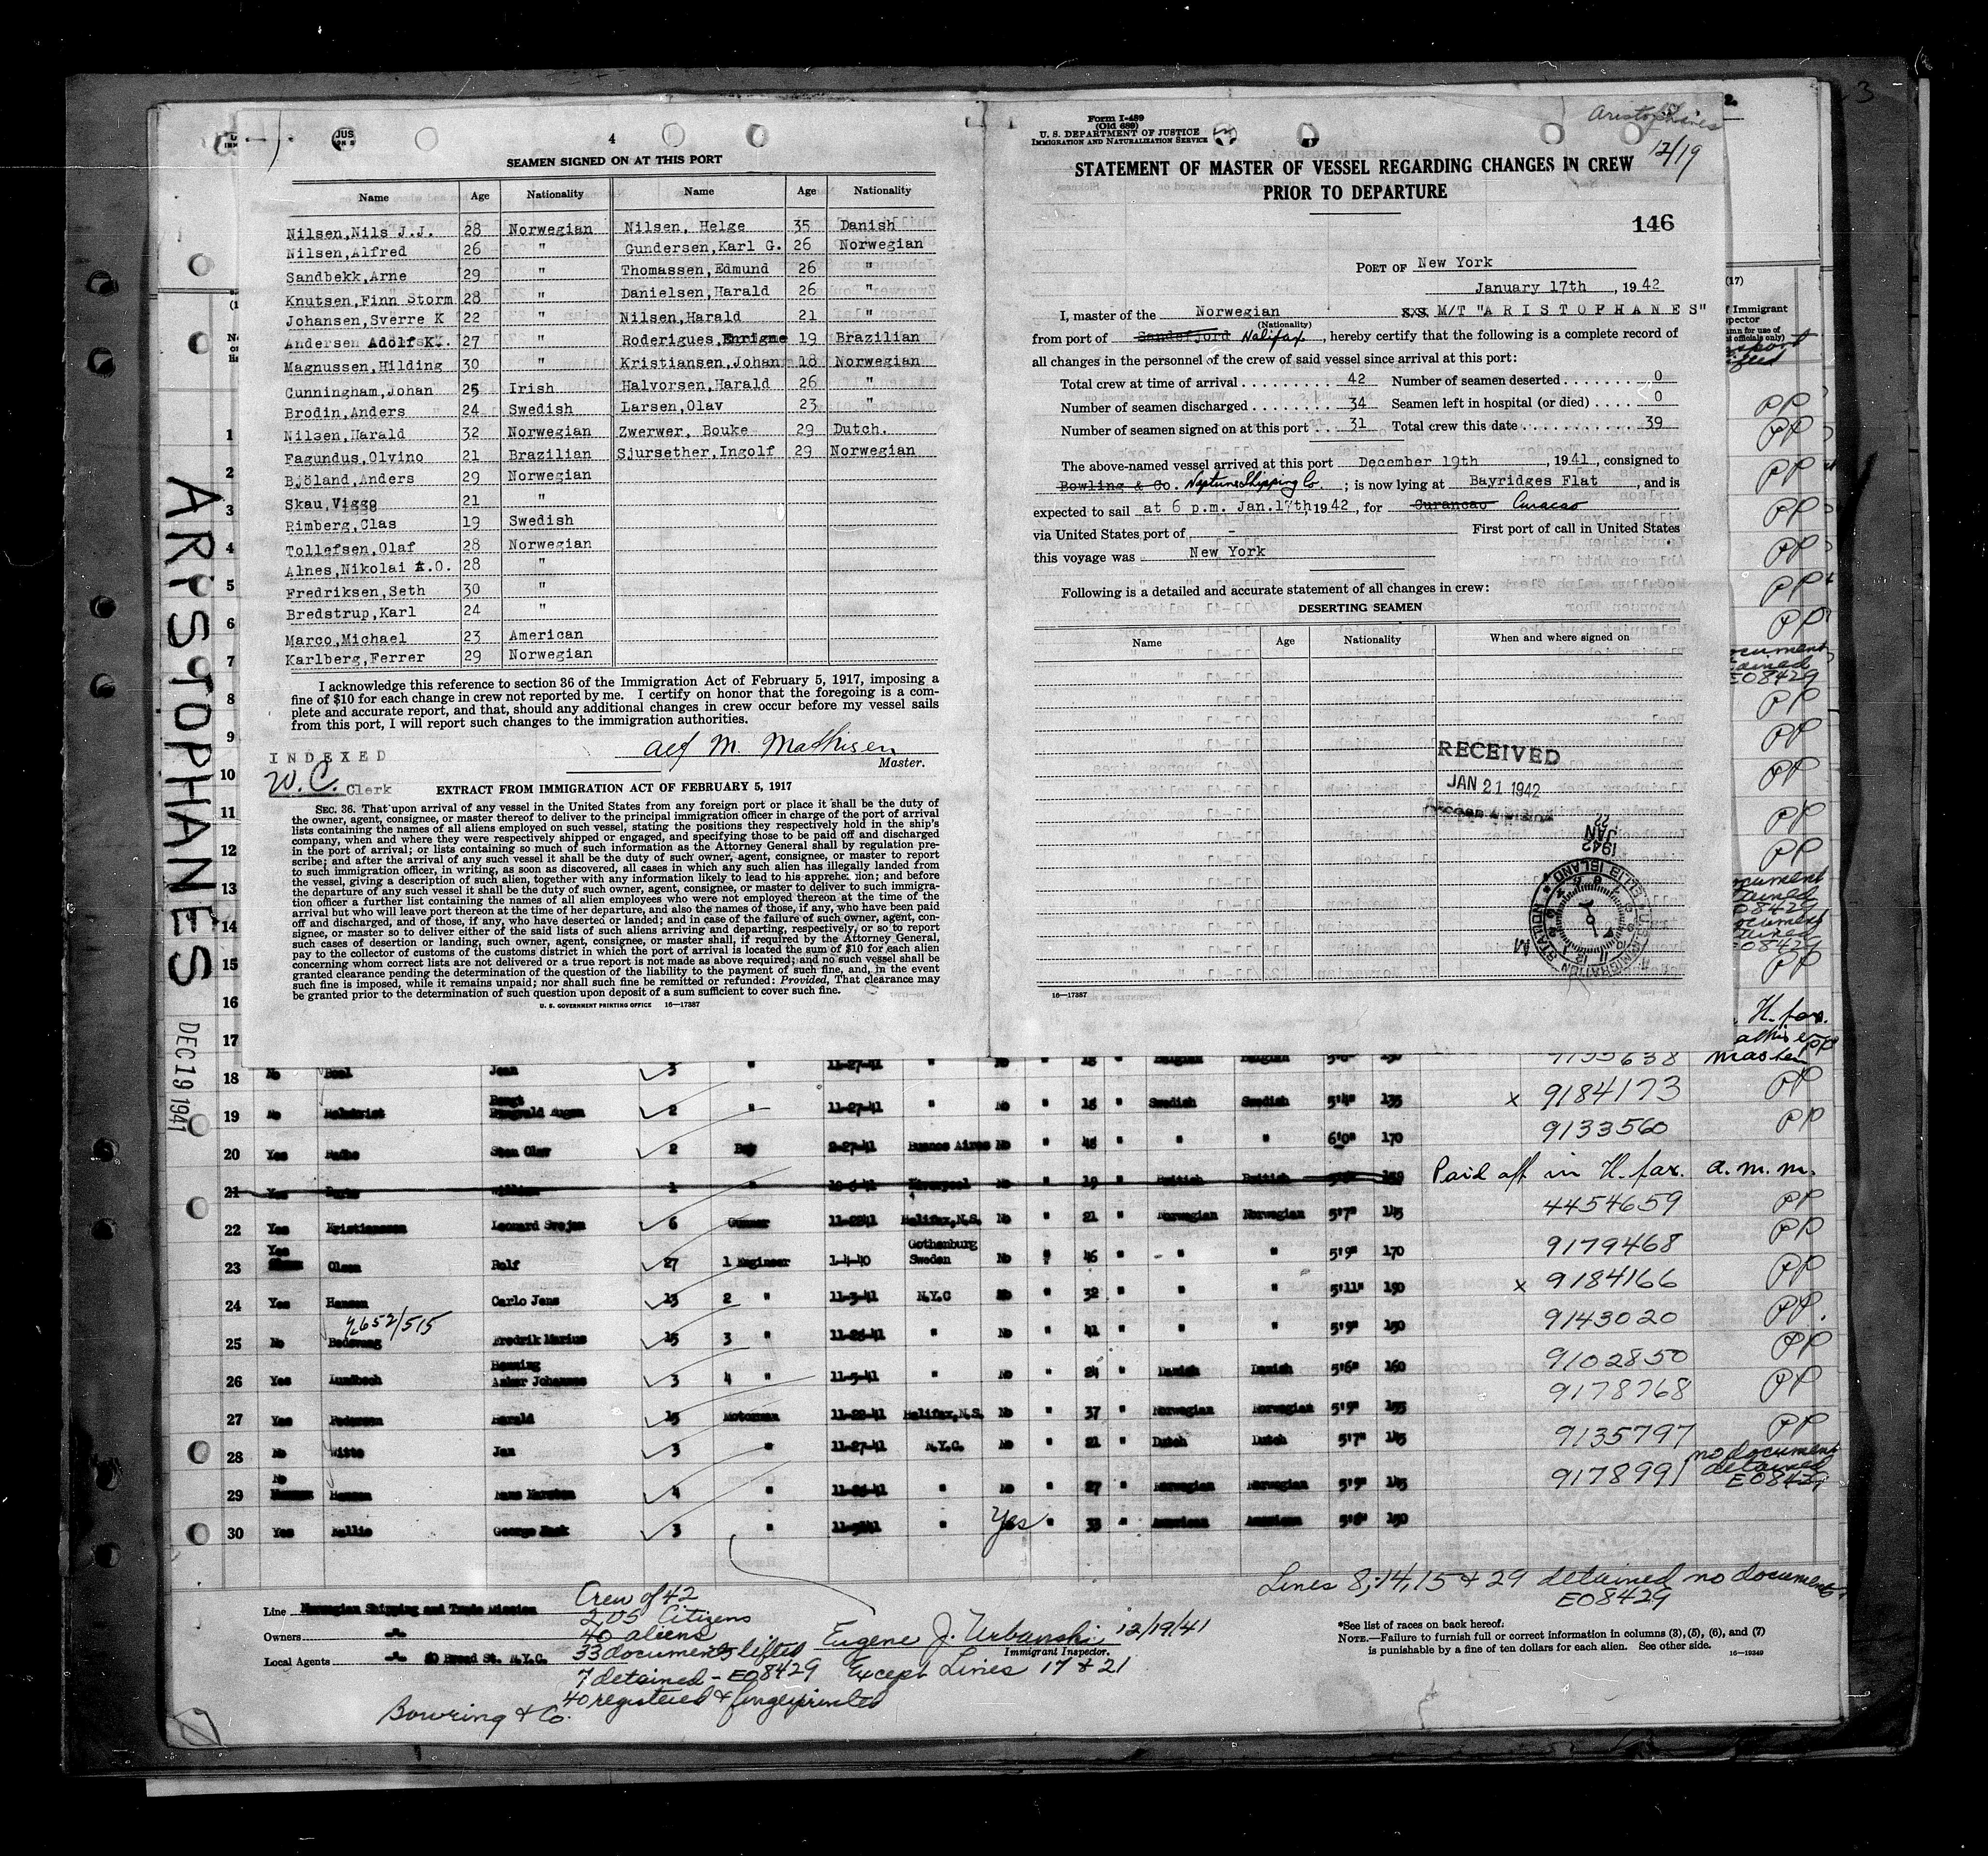 4
SEAMEN SIGNED ON AT THIS PORT
Name Age Nationality Name Age Nationality
Nilsen,Nils J.J. 28 Norwegian Nilsen, Helge 35 Danish
Nilsen,Alfred 26 " Gundersen,Karl G. 26 Norwegian
Sandbekk,Arne 29 " Thomassen,Edmund 26 "
Knutsen,Finn Storm 28 " Danielsen,Harald 26 "
Johansen,Sverre K 22 " Nilsen,Harald 21 "
Andersen Adolf K. 27 " Roderigues,Enrigne 19 Brazilian
Magnussen, Hilding 30 " Kristiansen,Johan 18 Norwegian
Cunningham,Johan 25 Irish Halvorsen,Harald 26 "
Brodin,Anders 24 Swedish Larsen,Olav 23 "
Nilsen,Harald 32 Norwegian Zwerwer, Bouke 29 Dutch.
Fagundus,Olvino 21 Brazilian Sjursether,Ingolf 29 Norwegian
Bjöland,Anders 29 Norwegian
Skau,Viggo 21 "
Rimberg,Clas 19 Swedish
Tollefsen,Olaf 28 Norwegian
Alnes,Nikolai A.O. 28 "
Fredriksen,Seth 30 "
Bredstrup,Karl 24 "
Marco,Michael 23 American
Karlberg,Ferrer 29 Norwegian
I acknowledge this reference to section 36 of the Immigration Act of February 5, 1917, imposing a
fine of $10 for each change in crew not reported by me. I certify on honor that the foregoing is a com-
plete and accurate report, and that, should any additional changes in crew occur before my vessel sails
from this port, I will report such changes to the immigration authorities.
Alf M. Mathisen
Master.
INDEXED
W.C. Clerk
EXTRACT FROM IMMIGRATION ACT OF FEBRUARY 5, 1917
SEC. 36. That upon arrival of any vessel in the United States from any foreign port or place it shall be the duty of
the owner, agent, consignee, or master thereof to deliver to the principal immigration officer in charge of the port of arrival
lists containing the names of all aliens employed on such vessel, stating the positions they respectively hold in the ship's
company, when and where they were respectively shipped or engaged, and specifying those to be paid off and discharged
in the port of arrival; or lists containing so much of such information as the Attorney General shall by regulation pre-
scribe; and after the arrival of any such vessel it shall be the duty of such owner, agent, consignee, or master to report
to such immigration officer, in writing, as soon as discovered, all cases in which any such alien has illegally landed from
the vessel, giving a description of such alien, together with any information likely to lead to his apprehension; and before
the departure of any such vessel it shall be the duty of such owner, agent, consignee, or master to deliver to such immigra-
tion officer a further list containing the names of all alien employees who were not employed thereon at the time of the
arrival but who will leave port thereon at the time of her departure, and also the names of those, if any, who have been paid
off and discharged, and of those, if any, who have deserted or landed; and in case of the failure of such owner, agent, con-
signee, or master so to deliver either of the said lists of such aliens arriving and departing, respectively, or so to report
such cases of desertion or landing, such owner, agent, consignee, or master shall, if required by the Attorney General,
pay to the collector of customs of the customs district in which the port of arrival is located the sum of $10 for each alien
concerning whom correct lists are not delivered or a true report is not made as above required; and no such vessel shall be
granted clearance pending the determination of the question of the liability to the payment of such fine, and, in the event
such fine is imposed, while it remains unpaid; nor shall such fine be remitted or refunded: Provided, That clearance may
be granted prior to the determination of such question upon deposit of a sum sufficient to cover such fine.
U. S. GOVERNMENT PRINTING OFFICE 16—17387
Form I-489
(Old 689)
U. S. DEPARTMENT OF JUSTICE
IMMIGRATION AND NATURALIZATION SERVICE
Aristophanes
12/19
STATEMENT OF MASTER OF VESSEL REGARDING CHANGES IN CREW
PRIOR TO DEPARTURE
146
PORT OF New York
January 17th , 1942
I, master of the Norwegian M/T "ARISTOPHANES"
(Nationality)
from port of Sandefjord Halifax , hereby certify that the following is a complete record of
all changes in the personnel of the crew of said vessel since arrival at this port:
Total crew at time of arrival 42 Number of seamen deserted 0
Number of seamen discharged 34 Seamen left in hospital (or died) 0
Number of seamen signed on at this port 31 Total crew this date 39
The above-named vessel arrived at this port December 19th , 1941, consigned to
Bowling & Co. Neptune Shipping Co. ; is now lying at Bayridges Flat , and is
expected to sail at 6 p.m. Jan.17th,1942, for Curancao Curacao
via United States port of - First port of call in United States
this voyage was New York
Following is a detailed and accurate statement of all changes in crew:
DESERTING SEAMEN
Name Age Nationality When and where signed on
RECEIVED
JAN 21 1942
JAN 22 1942
ELLIS ISLAND
IMMIGRATION STATION
16—17387
ARISTOPHANES
DEC 19 1941
18 No Jean 3 " 11-27-41 " No " 18 " Belgian Belgian
19 No 2 " 11-27-41 " No " 18 " Swedish Swedish 5'4" 135 x 9184173 PP
20 Yes Sten Olav 2 Boy 2-27-41 Buenos Aires No " " " 6'0" 170 9133560 PP
21 Yes William 1 " Liverpool No " 19 " British British 159 Paid off in H.fax. a.m.m.
22 Yes Kristiansen Leonard Svejen 6 Gunner 11-2241 Halifax,N.S. No " 21 " Norwegian Norwegian 5'7" 145 4454659 PP
23 Yes Olsen Rolf 27 1 Engineer 1-4-40 Gothenburg Sweden No " 46 " " " 5'9" 170 9179468 PP
24 Yes Hansen Carlo Jens 13 2 " 11-3-41 N.Y.C No " 32 " " " 5'11" 150 x 9184166 PP
25 No Fredrik Marius 15 3 " " No " 41 " " " 5'9" 150 9143020 PP.
26 Yes Lundbech Henning Johannes 3 4 " 11-5-41 " No " 24 " Danish Danish 5'6" 160 9102850 PP
27 Yes Pedersen Harald 15 Motorman 11-22-41 Halifax,N.S. No " 37 " Norwegian Norwegian 5'9" 155 9178768 PP
28 No Witte Jan 3 " 11-27-41 N.Y.C. No " 21 " Dutch Dutch 5'7" 145 9135797 PP
29 No Hansen 4 " " No " 27 " Norwegian Norwegian 5'9" 145 9178991 no document detained E08429
30 Yes George 3 " " Yes " 33 " American American 5'8" 150
Lines 8,14,15 & 29 detained no document
E08429
Line Norwegian Shipping and Trade Mission
Owners
Local Agents Broad St. N.Y.C.
Crew of 42
2 US Citizens
40 aliens
33 documents lifted
7 detained - E08429 Except Lines 17 & 21
40 registered & fingerprinted
Bowring & Co.
Eugene J. Urbanski 12/19/41
Immigrant Inspector.
*See list of races on back hereof.
NOTE.—Failure to furnish full or correct information in columns (3), (5), (6), and (7)
is punishable by a fine of ten dollars for each alien. See other side.
16—19349